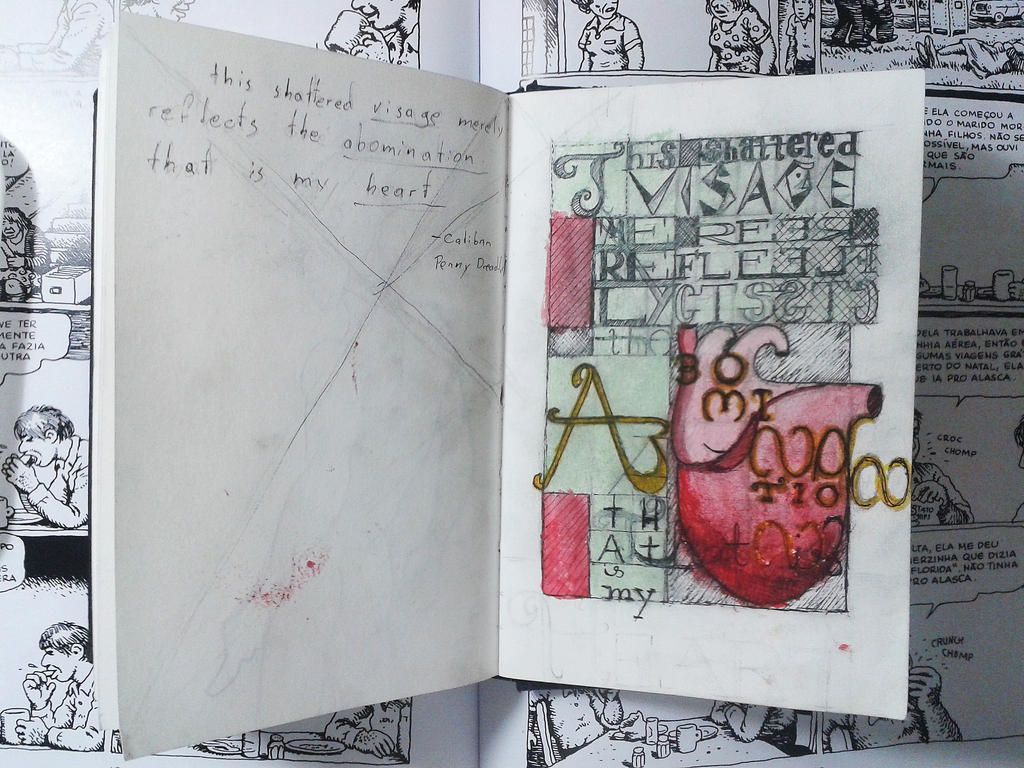 this shattered visage merely
reflects the abomination
that is my heart
- Caliban
Penny Dreadful
This shattered
VISAGE
MERE
REFLE
LY CTS
the
A
BO
MI
NA
TIO
TH
At
is
my
E ELA COMEÇOU A
DO O MARIDO MOR
NHA FILHOS. NÃO SE
POSSÍVEL, MAS OUVI
QUE SÃO
RMAIS.
VE TER
MENTE
A FAZIA
UTRA
DELA TRABALHAVA EM
NHIA AÉREA, ENTÃO E
GUMAS VIAGENS GRÁ
ERTO DO NATAL, ELA
E IA PRO ALASCA.
CROC
CHOMP
LTA, ELA ME DEU
ERZINHA QUE DIZIA
"FLORIDA". NÃO TINHA
PRO ALASCA.
CRUNCH
CHOMP